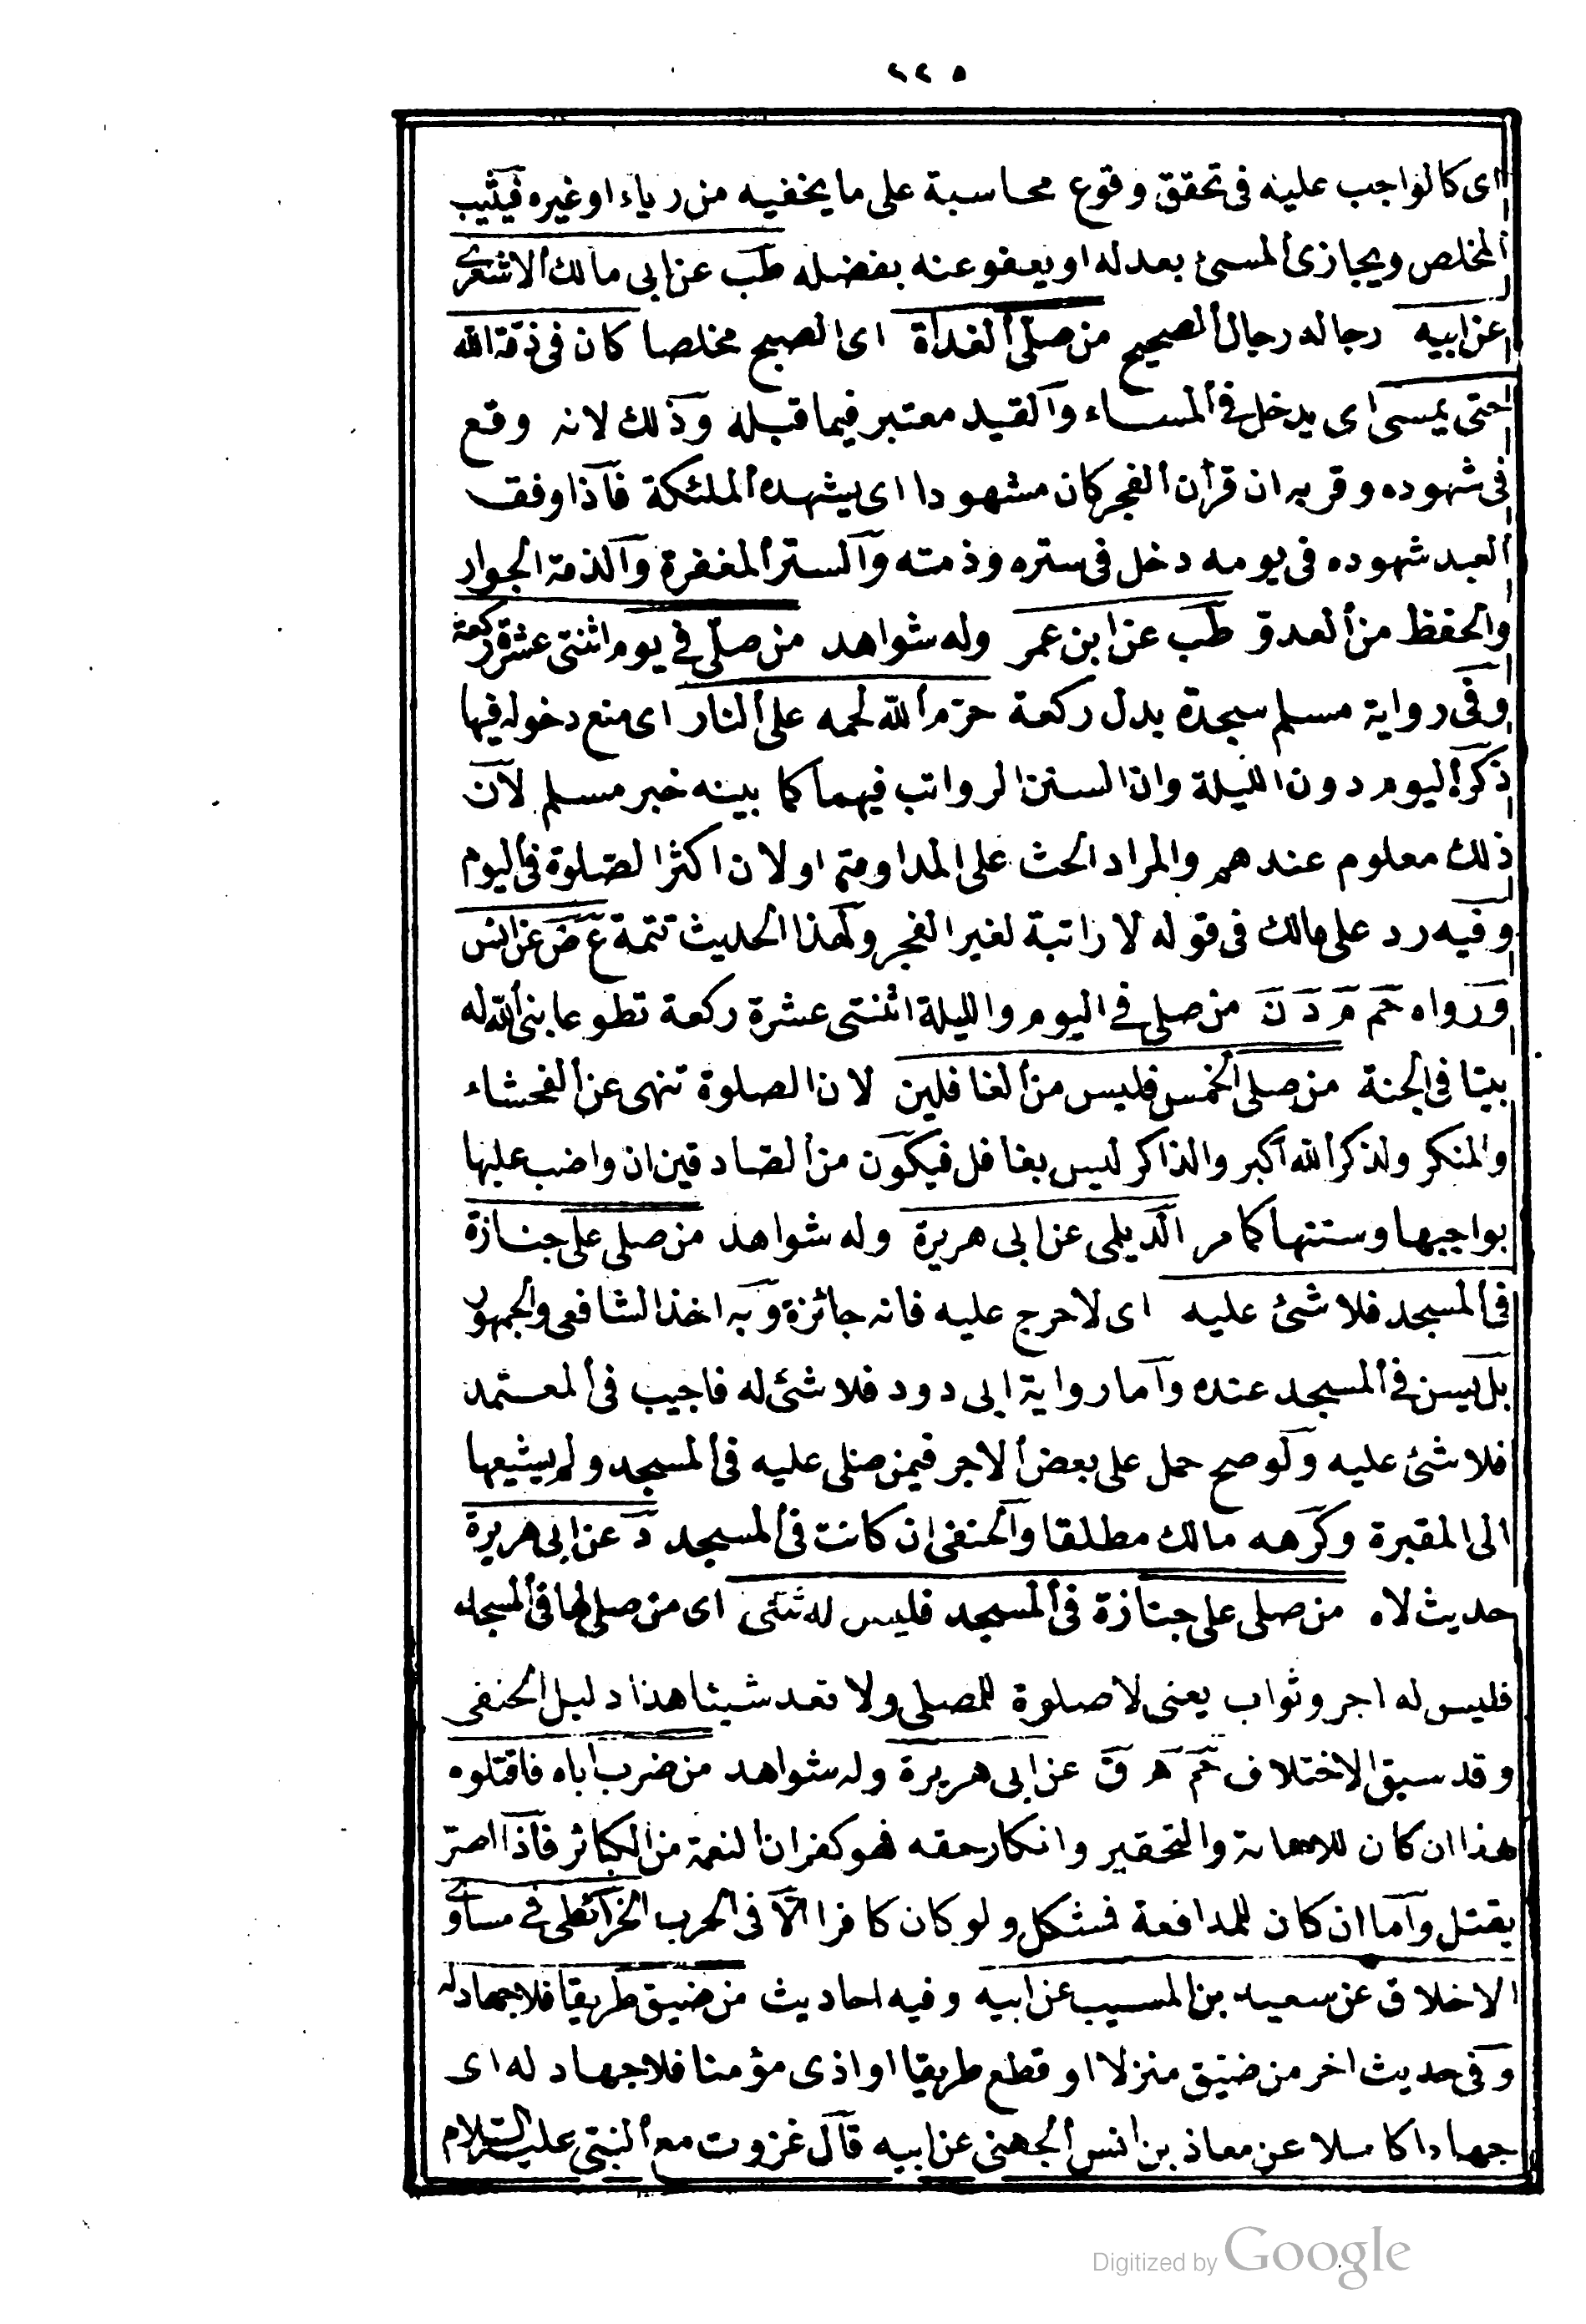 ٢٢٥
اى كالواجب عليه فى تحقق وقوع محاسبة على ما يخفيه من رياء او غيره فيثيب
المخلص ويجازى المسئ بعدله او يعفو عنه بفضله طب عن ابى مالك الاشعرى
عن ابيه رجاله رجال الصحيح من صلى الغداة اى الصبح مخلصا كان فى ذمة الله
حتى يمسى اى يدخل فى المساء والقيد معتبر فيما قبله وذلك لانه وقع
فى شهوده وقربه ان قرأن الفجر كان مشهودا اى يشهده الملئكة فاذا وفق
العبد شهوده فى يومه دخل فى ستره وذمته والستر المغفرة والذمة الجوار
والحفظ من العدو طب عن ابن عمر وله شواهد من صلى فى يوم اثنتى عشرة ركعة
وفى رواية مسلم سجدة بدل ركعة حرم الله لحمه على النار اى منع دخوله فيها
ذكر اليوم دون الليلة وان السنن الرواتب فيهما كما بينه خبر مسلم لان
ذلك معلوم عندهم والمراد الحث على المداومة او لان اكثر الصلوة فى اليوم
وفيه رد على مالك فى قوله لا راتبة لغير الفجر ولهذا الحديث تتمة ع ض عن انس
ورواه حم م د ن من صلى فى اليوم والليلة اثنتى عشرة ركعة تطوعا بنى الله له
بيتا فى الجنة من صلى الخمس فليس من الغافلين لان الصلوة تنهى عن الفحشاء
والمنكر ولذكر الله اكبر والذاكر ليس بغافل فيكون من الصادقين ان واضب عليها
بواجبها وسننها كما مر الديلمى عن ابى هريرة وله شواهد من صلى على جنازة
فى المسجد فلا شئ عليه اى لا حرج عليه فانه جائزة وبه اخذ الشافعى والجمهور
بل يسن فى المسجد عنده واما رواية ابى دود فلا شئ له فاجيب فى المعتمد
فلا شئ عليه ولو صح حمل على بعض الاجر فيمن صلى عليه فى المسجد ولم يشيعها
الى المقبرة وكرهه مالك مطلقا والحنفى ان كانت فى المسجد د عن ابى هريرة
حديث لاه من صلى على جنازة فى المسجد فليس له شئ اى من صلى لها فى المسجد
فليس له اجر وثواب يعنى لا صلوة للمصلى ولا تعد شيئا هذا دليل الحنفى
وقد سبق الاختلاف حم هـ ق عن ابى هريرة وله شواهد من ضرب اباه فاقتلوه
هذا ان كان للاهانة والتحقير وانكار حقه فهو كفران النعمة من الكبائر فاذا اصر
يقتل واما ان كان للمدافعة فشكل ولو كان كافرا الا فى الحرب الخرائطى فى مساوى
الاخلاق عن سعيد بن المسيب عن ابيه وفيه احاديث من ضيق طريقا فلا جهاد له
وفى حديث اخر من ضيق منزلا او قطع طريقا او اذى مؤمنا فلا جهاد له اى
جهادا كاملا عن معاذ بن انس الجهنى عن ابيه قال غزوت مع النبى عليه السلام
Digitized by Google